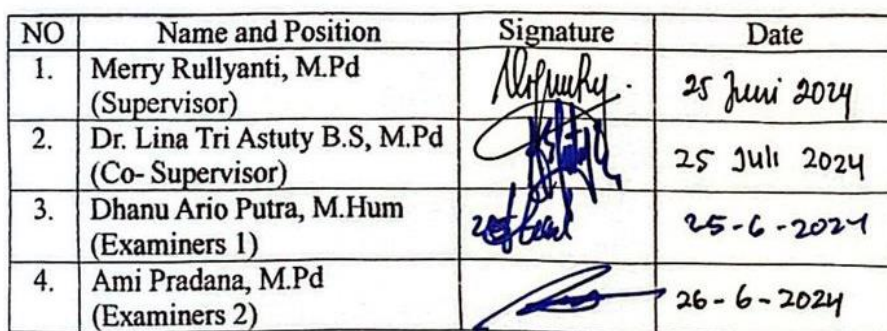 NO Name and Position Signature Date
1. Merry Rullyanti, M.Pd
(Supervisor) 25 Juni 2024
2. Dr. Lina Tri Astuty B.S, M.Pd
(Co- Supervisor) 25 Juli 2024
3. Dhanu Ario Putra, M.Hum
(Examiners 1) 25-6-2024
4. Ami Pradana, M.Pd
(Examiners 2) 26-6-2024